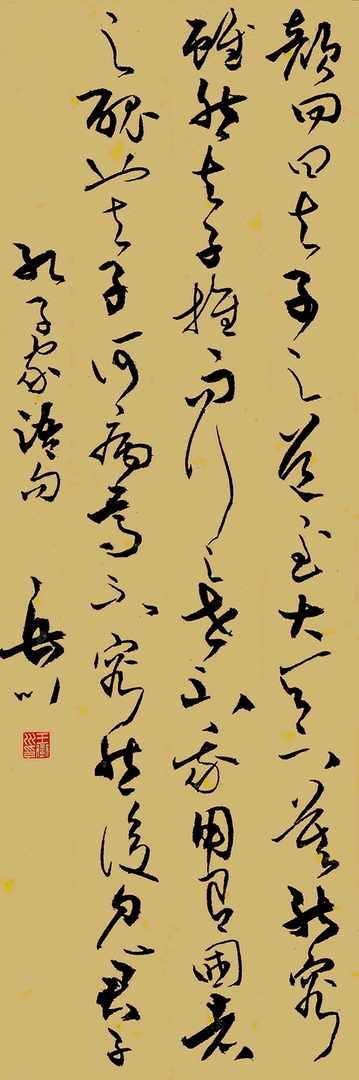 颜回曰夫子之道至大天下莫能容
虽然夫子推而行之世不我用有国者
之丑也夫子何病焉不容然后见君子
孔子家语句
岳川